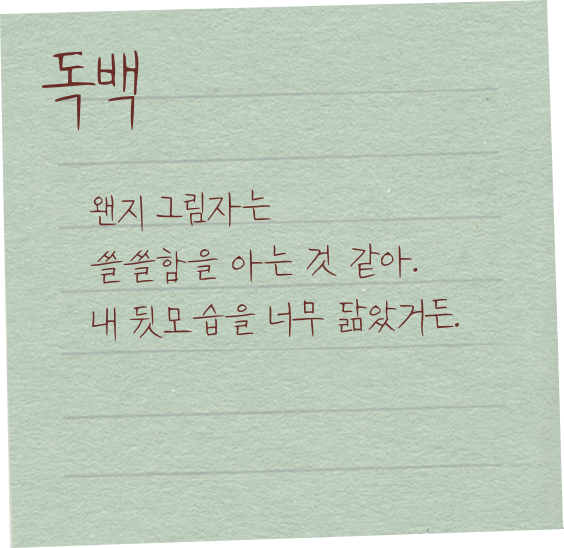 독백
왠지 그림자는
쓸쓸함을 아는 것 같아.
내 뒷모습을 너무 닮았거든.